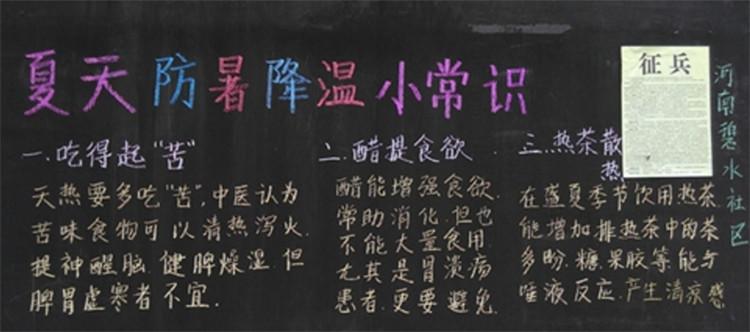 夏天防暑降温小常识
征兵
河南碧水社区
一.吃得起"苦"
天热要多吃"苦",中医认为
苦味食物可以清热泻火.
提神醒脑.健脾燥湿.但
脾胃虚寒者不宜.
二.醋提食欲
醋能增强食欲.
常助消化.但也
不能大量食用.
尤其是胃溃疡
患者.更要避免
三.热茶散
热
在盛夏季节饮用热茶
能增加排热茶中的茶
多盼.糖.果胶等能与
唾液反应.产生清凉感